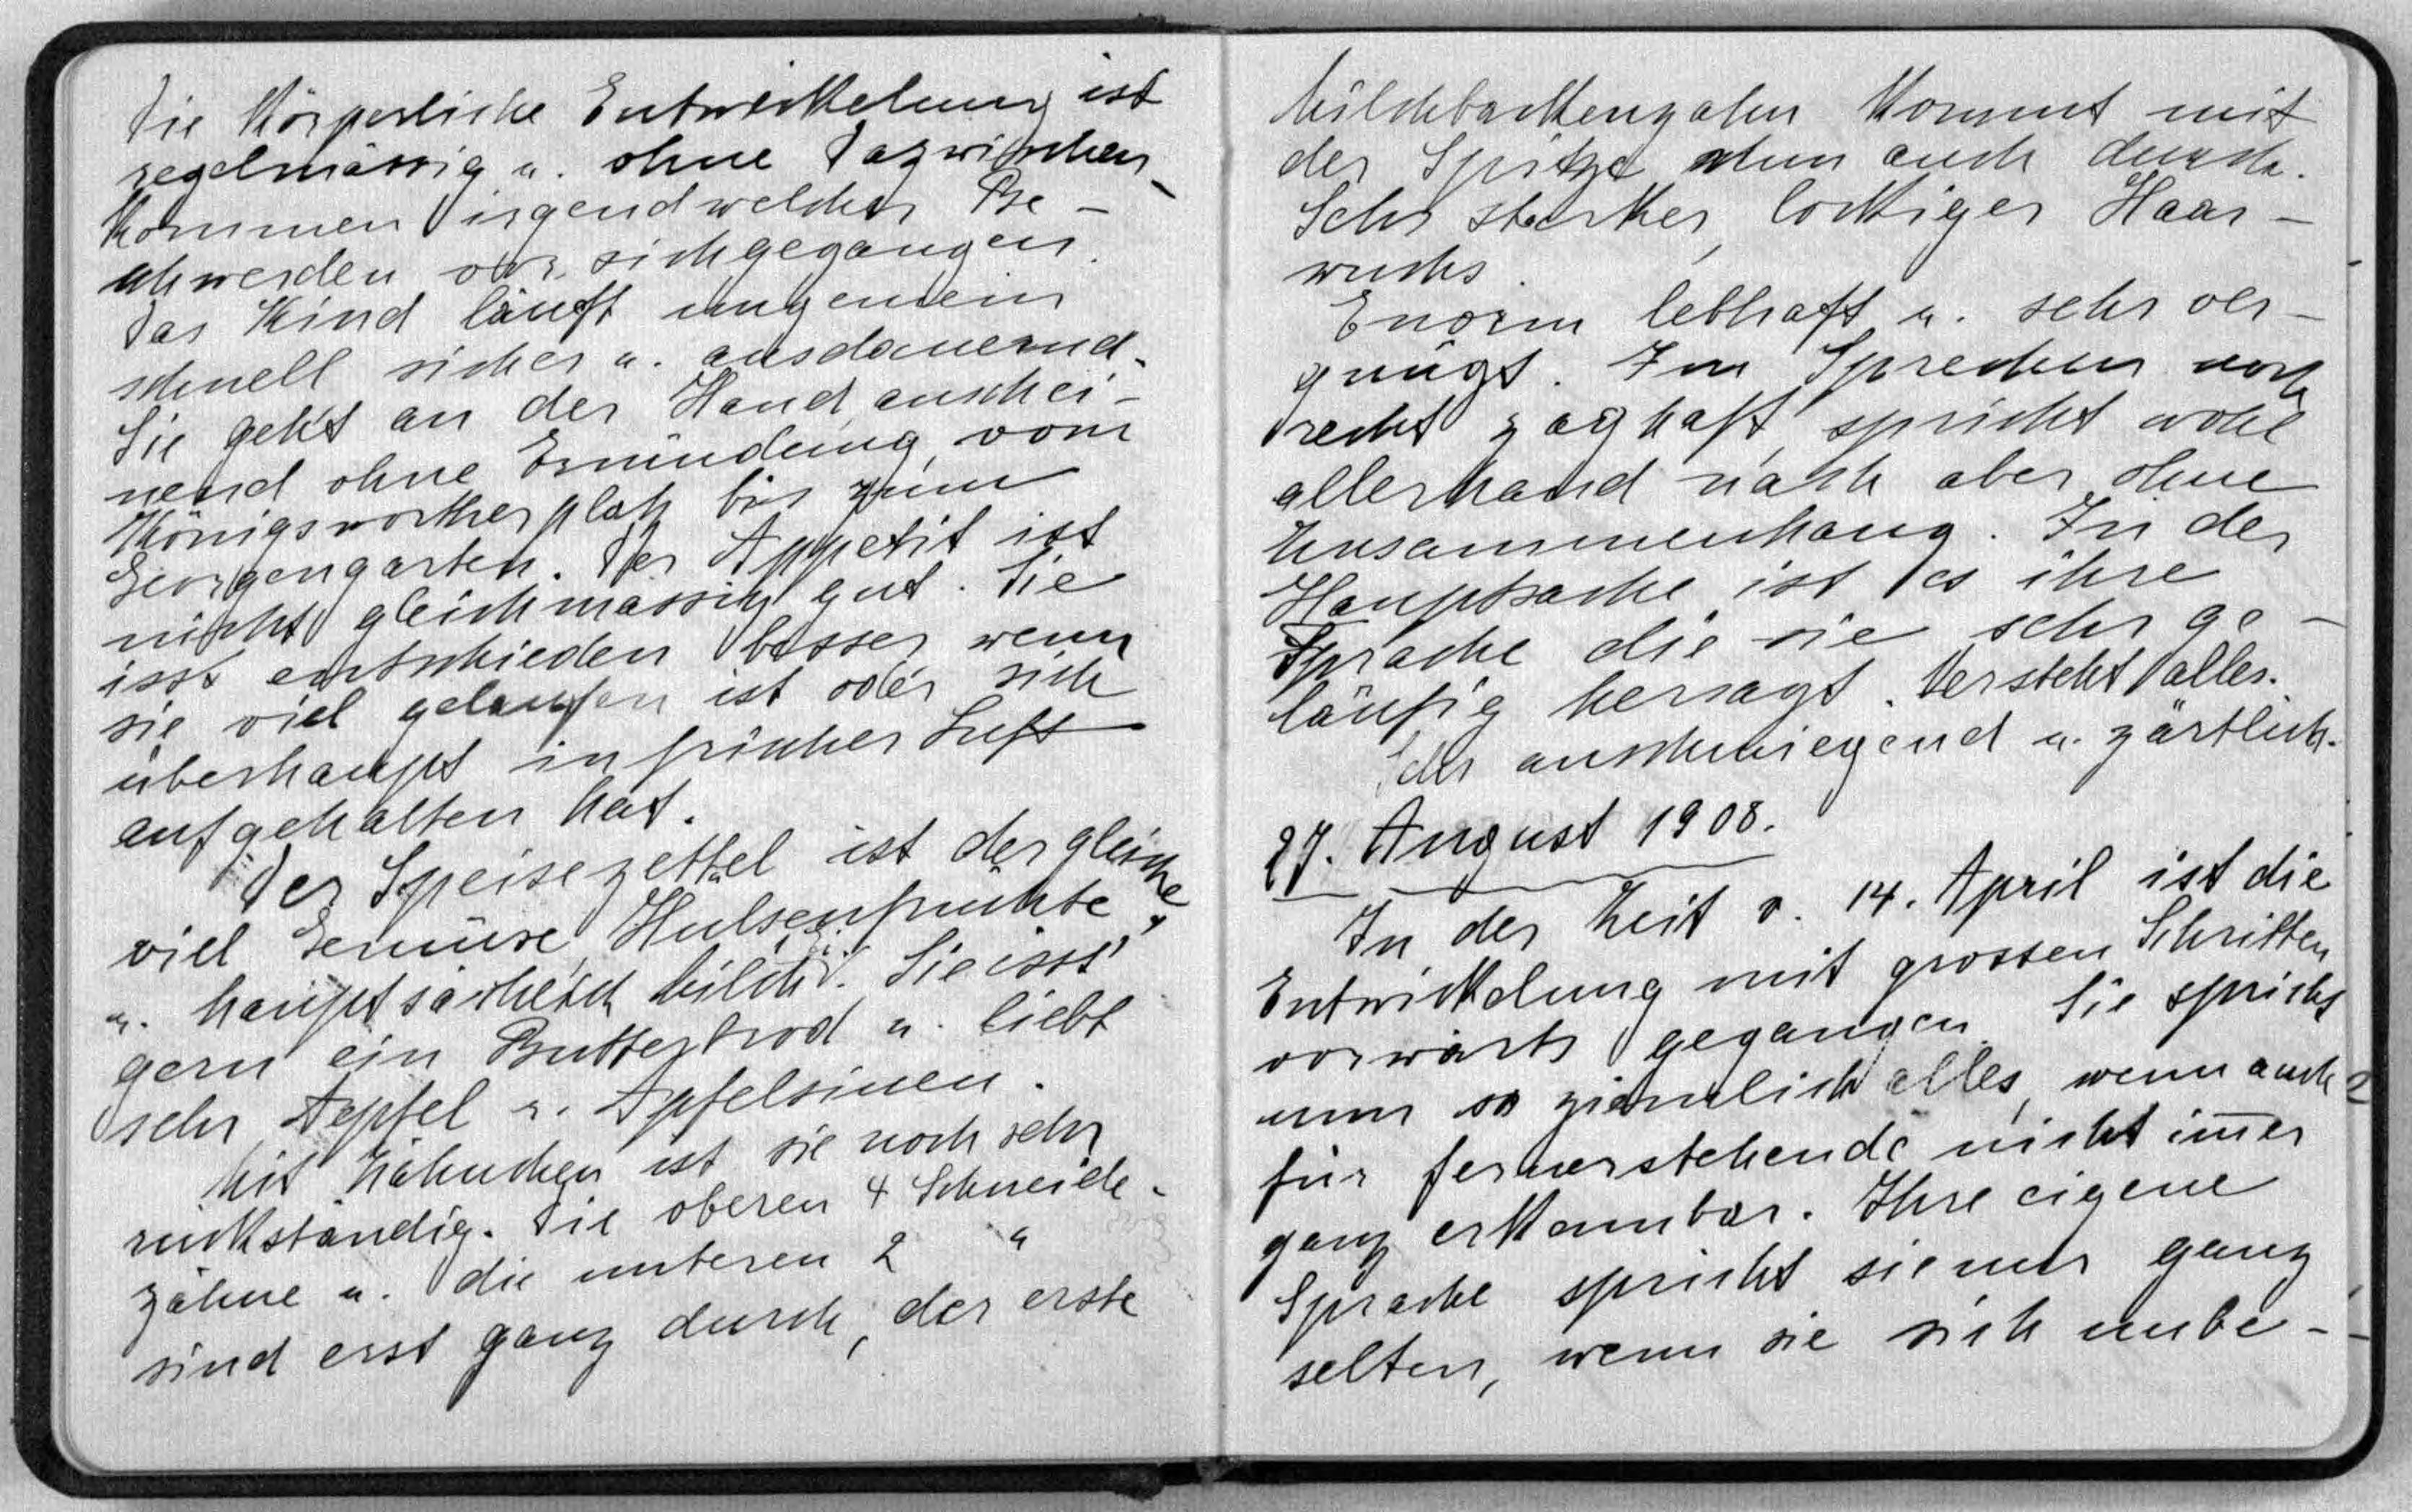 Die Körperliche Entwickelung ist
regelmässig u. ohne Dazwischen-
kommen irgendwelcher Be-
schwerden vor sichgegangen.
Das Kind läuft ungemein
schnell sicher u. ausdauernd.
Sie geht an der Hand anschei-
nend ohne Ermüdung vom
Königswortherplatz bis zum
Georgengarten. Der Appetit ist
nicht gleichmässig gut. Sie
isst entschieden besser wenn
sie viel gelaufen ist oder sich
überhaupt in frischer Luft
aufgehalten hat.
Der Speisezettel ist der gleiche,
viel Gemüse, Hülsenfrüchte
u. hauptsächlich Milch. Sie isst
gern ein Butterbrod u. liebt
sehr Aepfel u. Apfelsinen.
Mit Zähnchen ist sie noch sehr
rückständig. Die oberen 4 Schneide-
zähne u. die unteren 2 "
sind erst ganz durch, der erste
Milchbackenzahn kommt mit
der Spitze nun auch durch.
Sehr starker, lockiger Haar-
wuchs.
Enorm lebhaft u. sehr ver-
gnügt. Im Sprechen noch
recht zaghaft, spricht wohl
allerhand nach aber ohne
Zusammenhang. In der
Hauptsache ist es ihre
Sprache die sie sehr ge-
läufig hersagt. Versteht alles.
Sehr anschmiegend u. zärtlich.
27. August 1908.
In der Zeit v. 14. April ist die
Entwickelung mit grossen Schritten
vorwärts gegangen. Sie spricht
nun so ziemlich alles, wenn auch
für fernerstehende nicht im̅er
ganz erkennbar. Ihre eigene
Sprache spricht sie nur ganz
selten, wenn sie sich unbe-